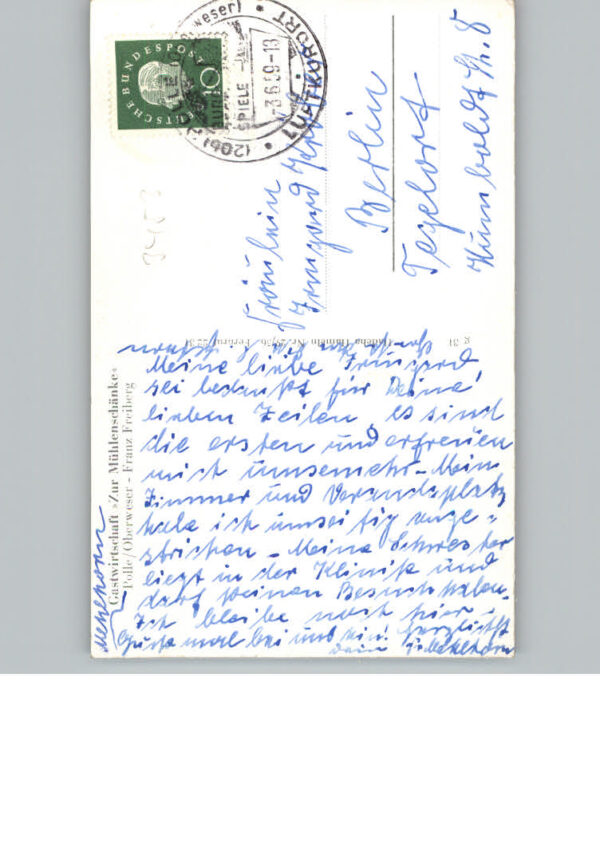 DEUTSCHE BUNDESPOST
10
(20b)
Oberweser)
SPIELE
-3.6.59-13
LUFTKURORT
Fräulein
Irmgard
Berlin
Tegelort
Humboldtstr. 8
3453
Gastwirtschaft »Zur Mühlenschänke«
Polle/Oberweser - Franz Freiberg
Meine liebe Irmgard
sei bedankt für Deine
lieben Zeilen, es sind
die ersten und erfreuen
mich umsomehr - Mein
Zimmer und Verandaplatz
habe ich umseitig ange=
strichen - Meine Schwester
liegt in der Klinik und
darf keinen Besuch haben.
Ich bleibe noch hier -
mal bei uns ein! Herzlichst
Dein